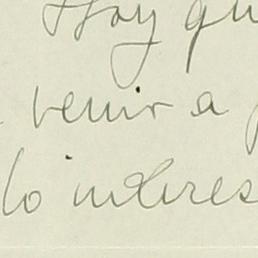 Hoy qu
venir a
lo interes